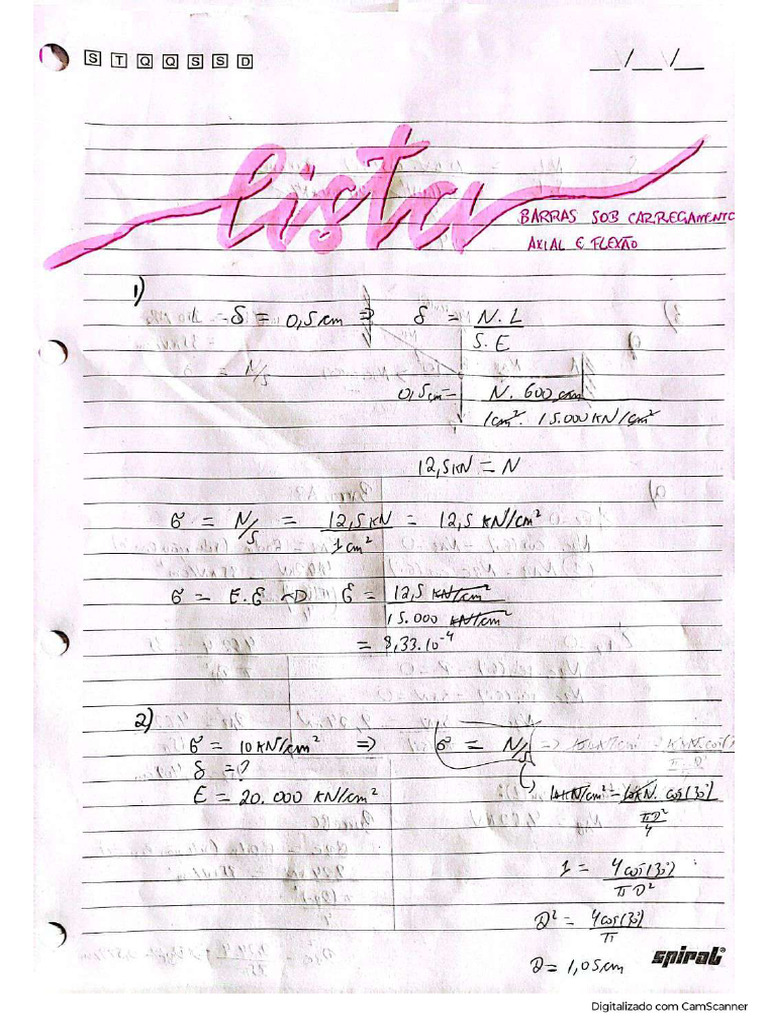 S T Q Q S S D __/__/__
lista
BARRAS SOB CARREGAMENTO
AXIAL E FLEXÃO
1)
δ = 0,5 cm ⇒ δ = N.L / S.E
0,5cm = N. 600 cm / 1cm². 15.000 KN/cm²
12,5KN = N
σ = N/S = 12,5 KN / 1cm² = 12,5 KN/cm²
σ = E.ε → ε = 12,5 KN/cm² / 15.000 KN/cm²
= 8,33.10⁻⁴
2)
σ = 10KN/cm² ⇒ σ = N/S
δ = ?
E = 20.000 KN/cm²
10KN/cm² = 10KN. cos(30) / πD²/4
1 = 4cos(30) / πD²
D² = 4cos(30) / π
D = 1,05cm
spiral®
Digitalizado com CamScanner